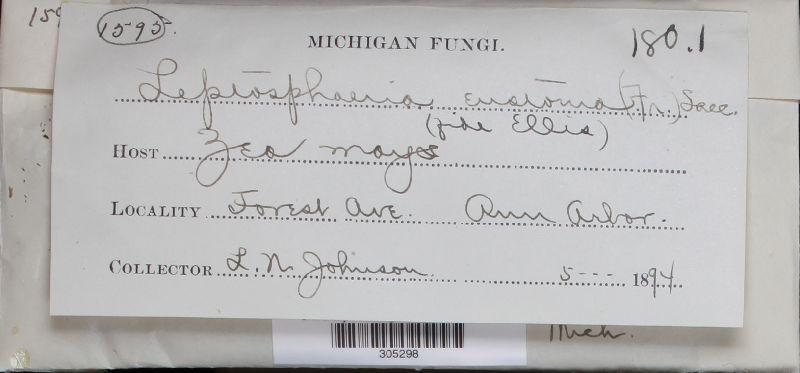 159
1595.
MICHIGAN FUNGI.
180.1
Leptosphaeria eustoma (Fr.) Sacc.
(fide Ellis)
HOST Zea mays
LOCALITY Forest Ave. Ann Arbor.
COLLECTOR L. N. Johnson 5--- 1894
Mich.
305298